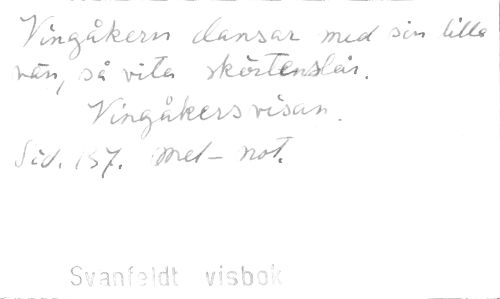 Vingåkern dansar med sin lilla
vän, så vita skörtenslår.
Vingåkersvisan.
Sid. 157. Mel - not.
Svanfeldt visbok